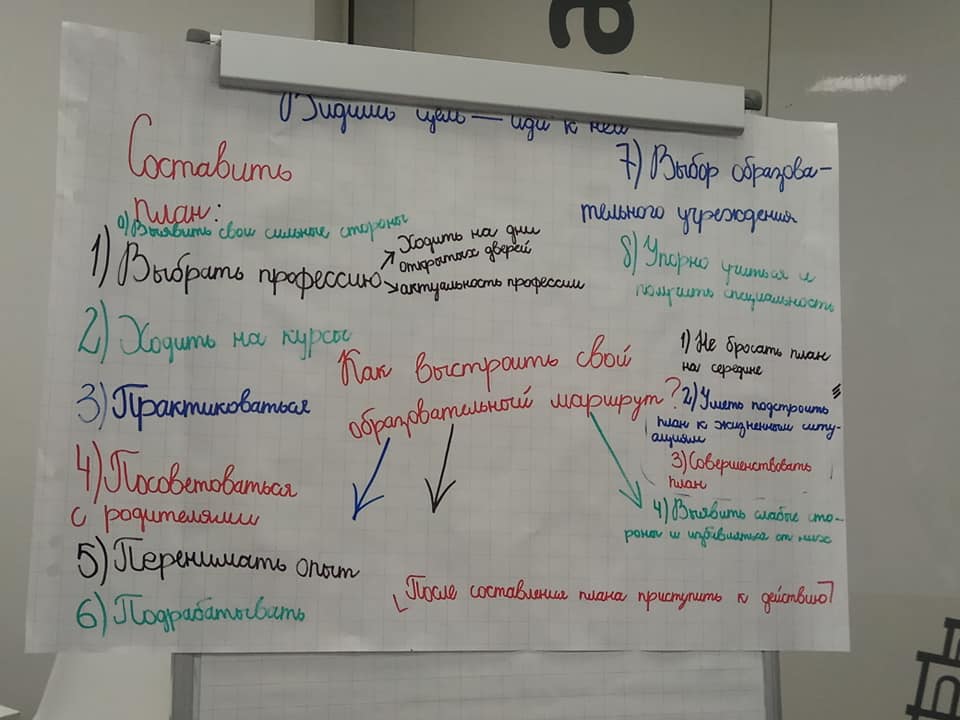 а
Видишь цель — иди к ней
Составить
план:
0) Выявить свои сильные стороны
1) Выбрать профессию
Ходить на дни
открытых дверей
актуальность профессии
2) Ходить на курсы
3) Практиковаться
4) Посоветоваться
с родителями
5) Перенимать опыт
6) Подрабатывать
7) Выбор образова-
тельного учреждения
8) Упорно учиться и
получить специальность
Как выстроить свой
образовательный маршрут?
1) Не бросать план
на середине
2) Уметь подстроить
план к жизненным ситу-
ациям
3) Совершенствовать
план
4) Выявить слабые сто-
роны и избавиться от них
[После составления плана приступить к действию]